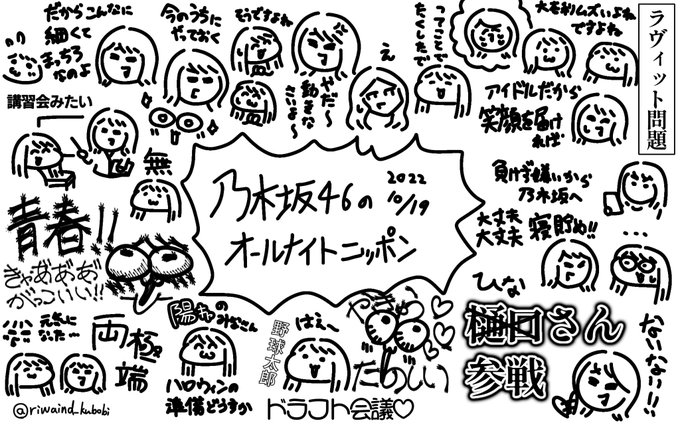 ラヴィット問題
だからこんなに
細くて
まっちろ
なのよ
今のうちに
やっておく
そうですよね
やだ〜
動きな
さいよ〜
え
ってことで
たくしたで
ですよね
アイドルだから
笑顔を届け
れば
講習会みたい
無
青春!!
きゃあ゛あ゛あ゛
がっこいい!!
乃木坂46の
2022
10/19
オールナイトニッポン
負けず嫌いから
乃木坂へ
大丈夫
大丈夫
寝貯め!!
...
ひな
樋口さん
参戦
ないない!!
元気に
なった〜
両極端
陽キャのみなさん
ハロウィンの
準備どうすか
野球太郎
はぇ〜
たのしい
ドラフト会議♡
@riwaind_kubobi